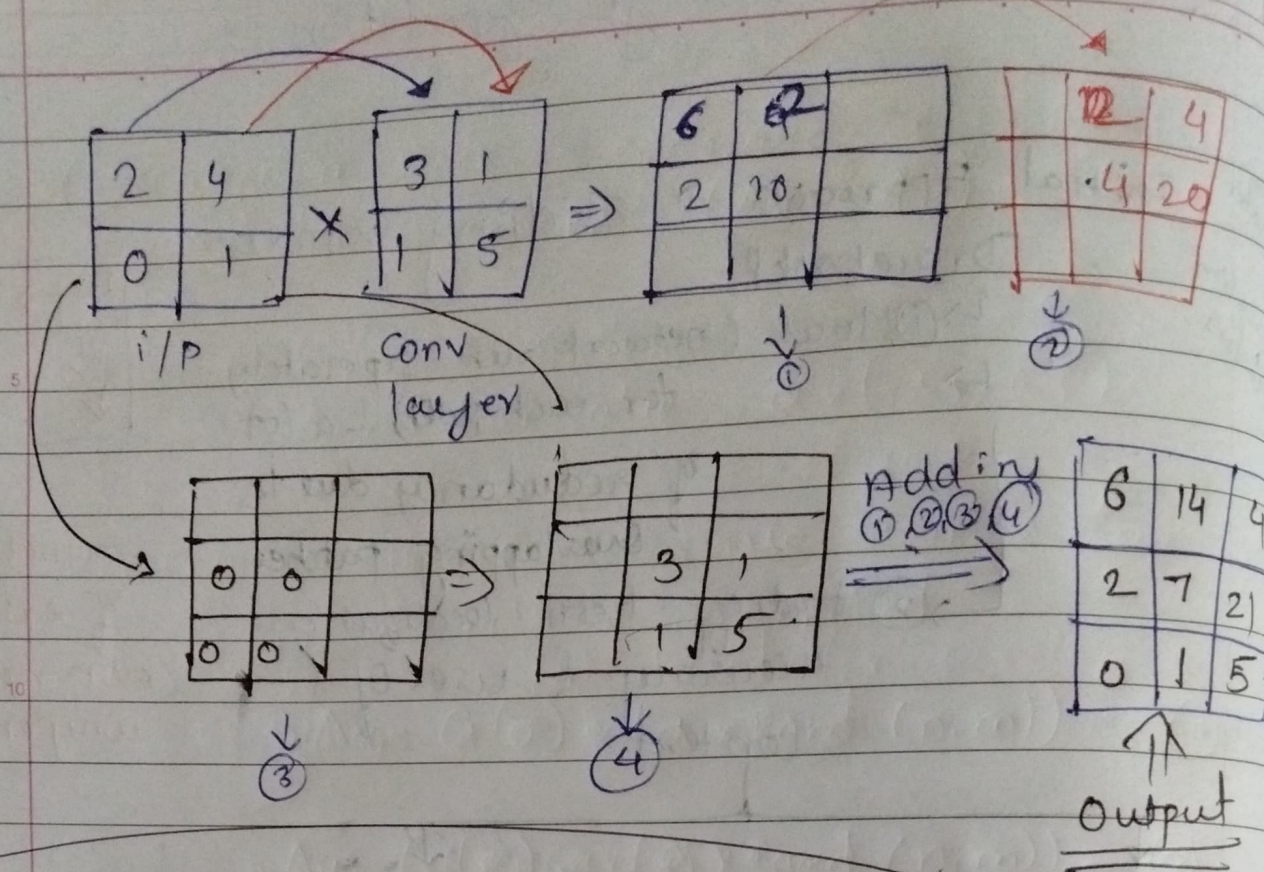 2 4
0 1
i/p
×
3 1
1 5
conv
layer
⇒
6 2
2 10
①
12 4
4 20
②
5
0 0
0 0
③
⇒
3 1
1 5
④
Adding
①,②,③,④
6 14 4
2 7 21
0 1 5
Output
10